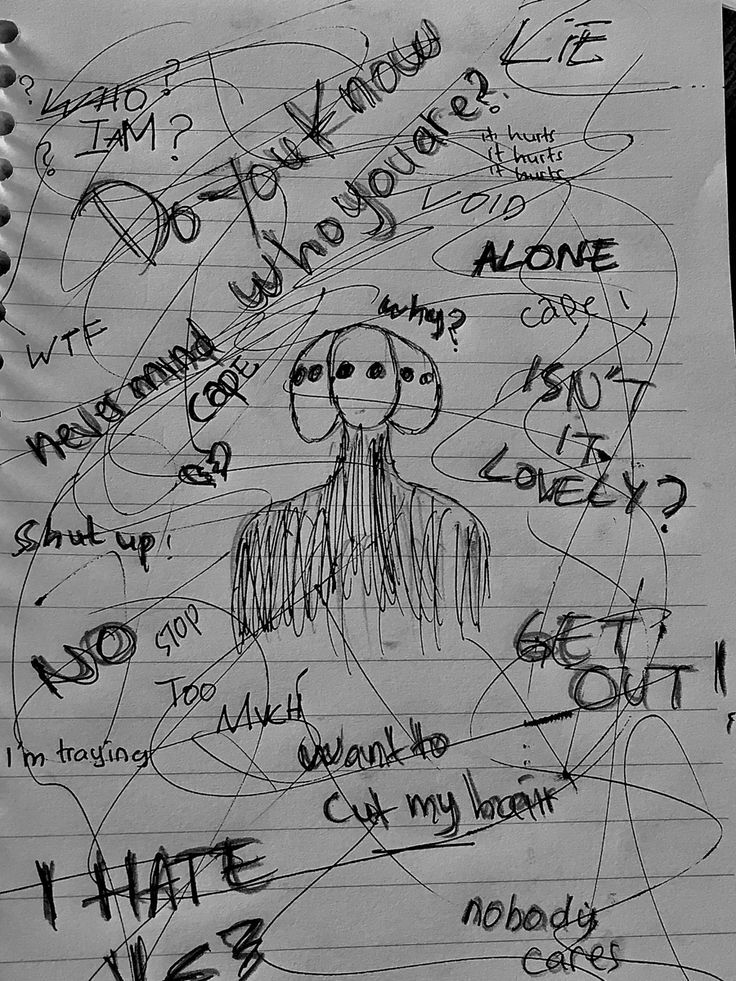 LiE
? WHO ?
I AM ?
?
Do You Know
who you are?
it hurts
it hurts
it hurts
VOID
ALONE
why?
cape!
WTF
never mind
cape
ISN'T
IT
LOVELY?
Shut up!
NO
STOP
TOO
MUCH
GET
OUT!
I'm traying
want to
Cut my
I HATE
nobody
cares